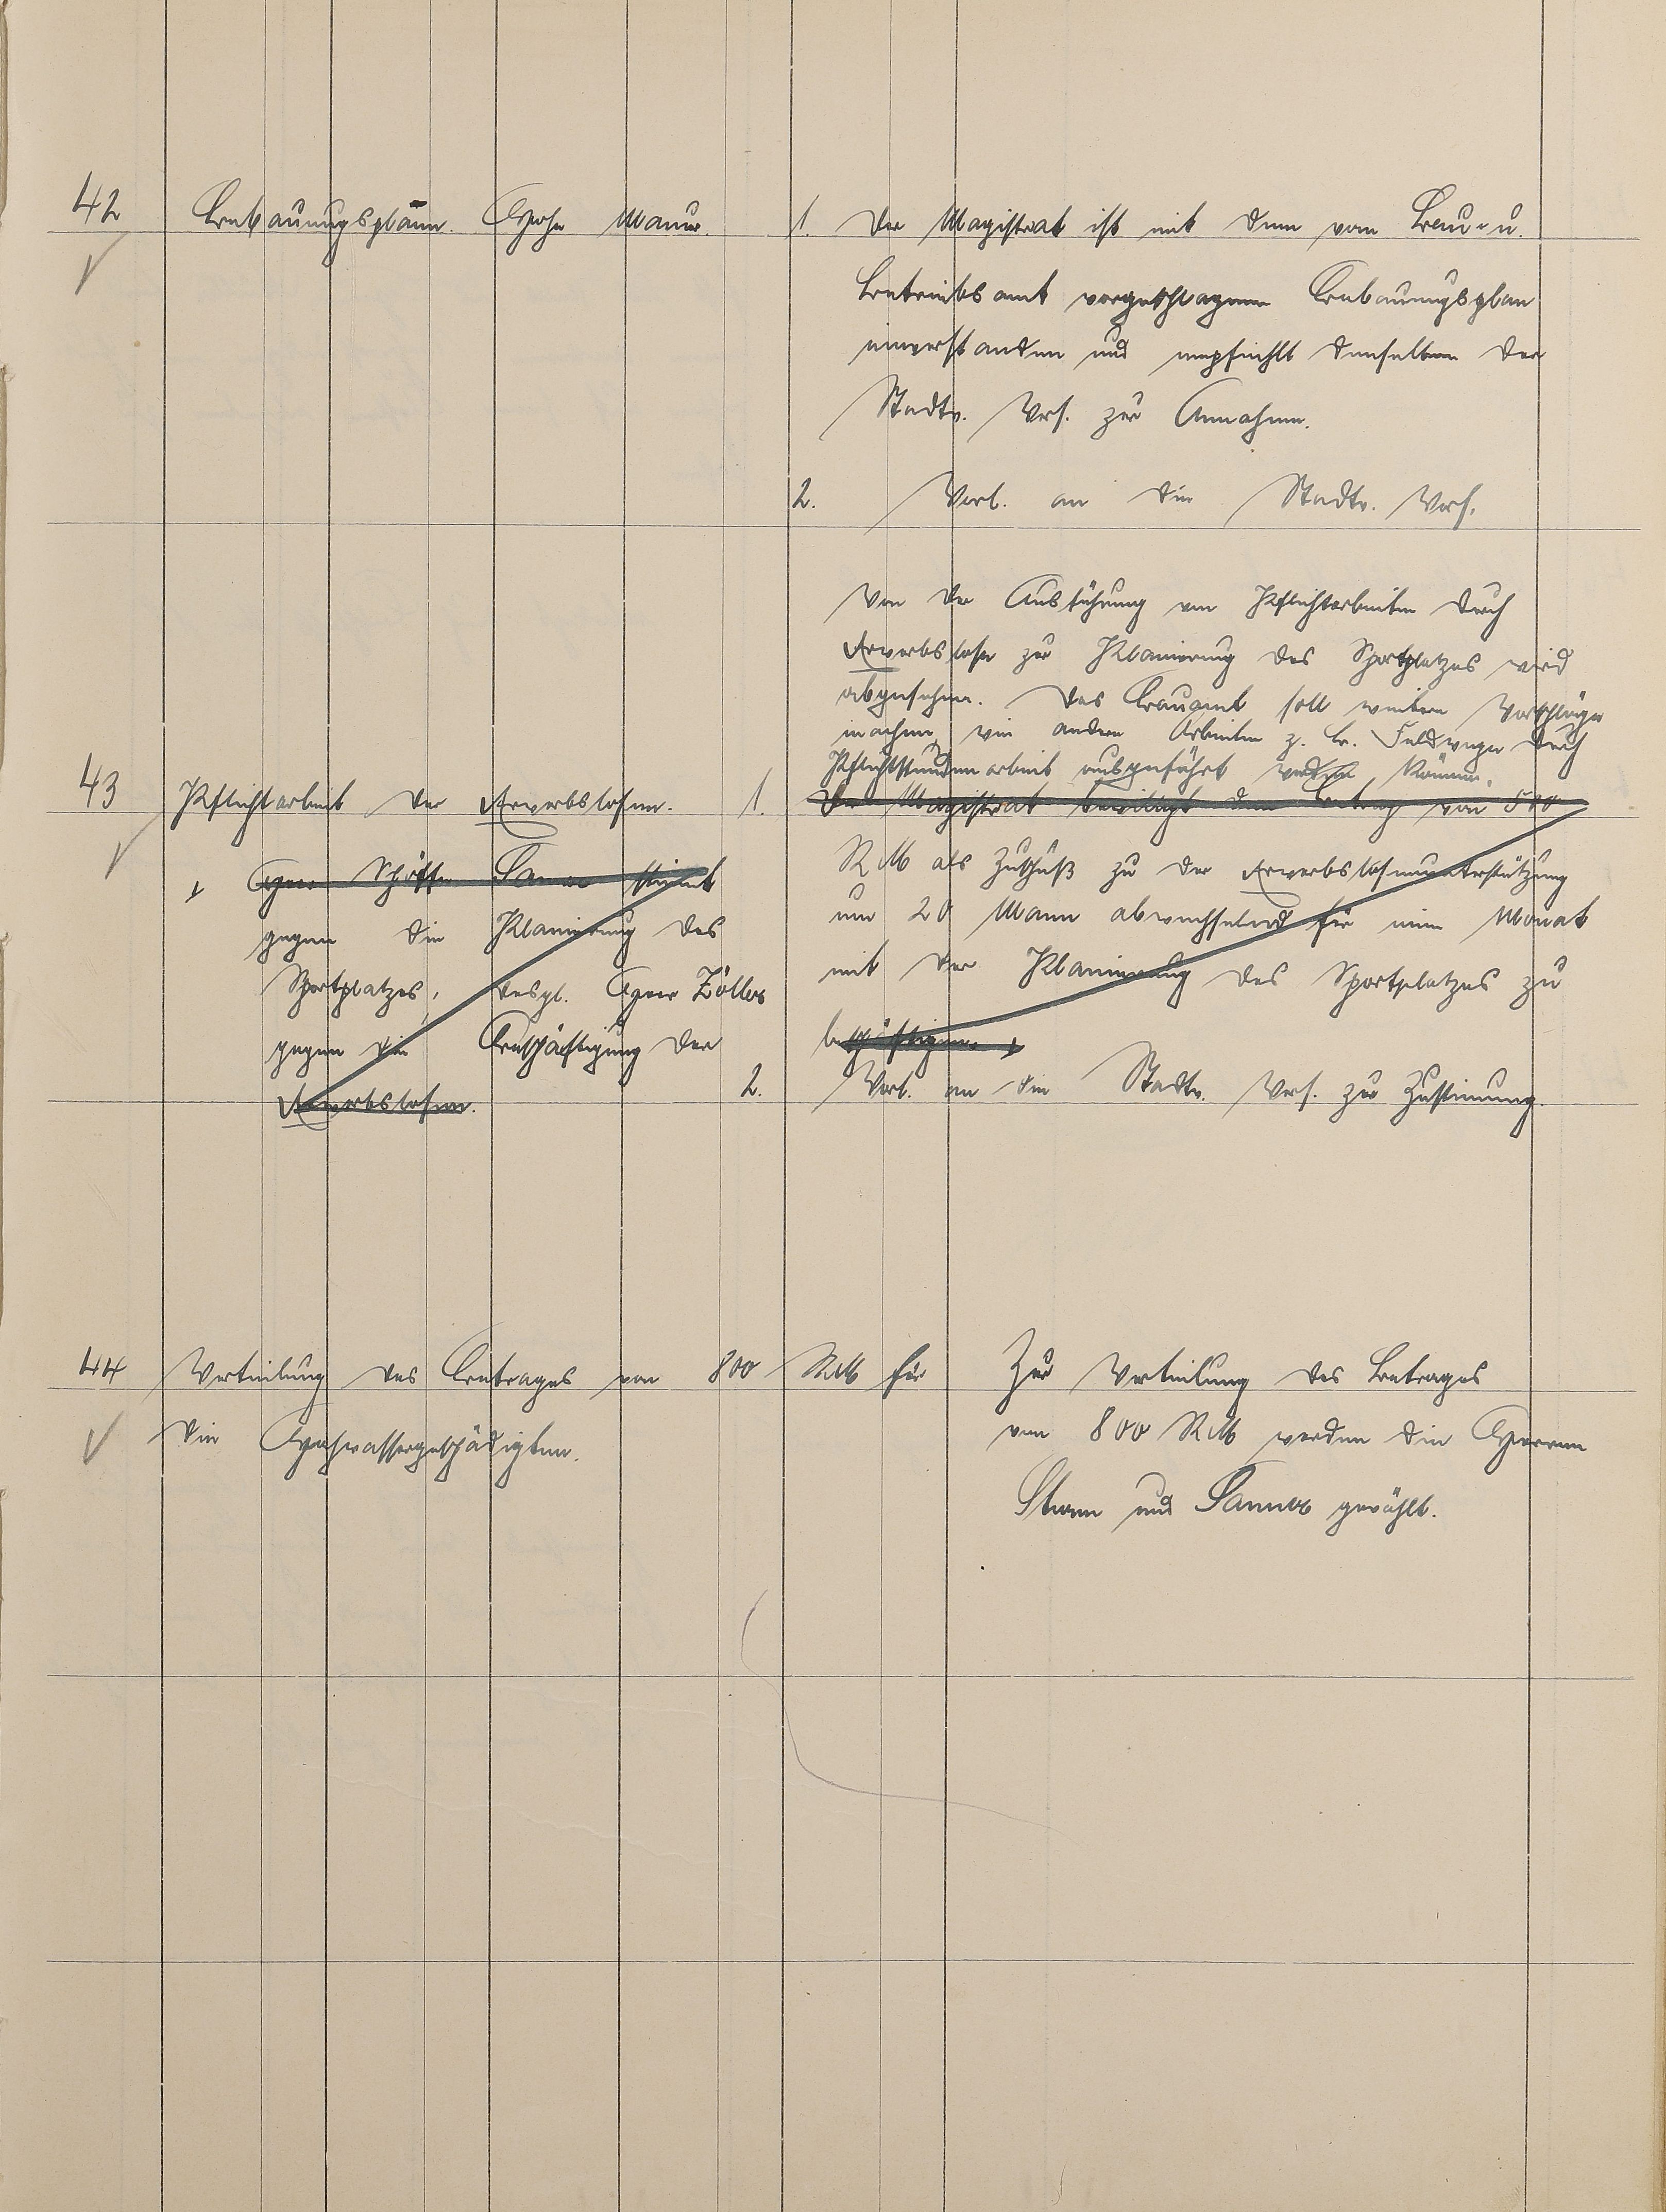 42 Bebauungsplan Hohe Mauer.
1. Der Magistrat ist mit dem vom Bau- u.
Betriebsamt vorgeschlagenen Bebauungsplan
einverstanden und empfiehlt denselben der
Stadtv. Vers. zur Annahme.
2. Vorl. an die Stadtv. Vers.
43 Pflichtarbeit der Erwerbslosen.
+ Herr Schöffe Sanner stimmt
gegen die Planierung des
Sportplatzes, desgl. Herr Zöller
gegen die Beschäftigung der
Erwerbslosen.
Von der Ausführung von Pflichtarbeiten durch
Erwerbslose zur Planierung des Sportplatzes wird
abgesehen. Das Bauamt soll weitere Vorschläge
machen, wie andere Arbeiten z. B. Feldwege durch
Pflichtstundenarbeit ausgeführt werden können.
1. Der Magistrat bewilligt den Betrag von 500
RM als Zuschuß zu der Erwerbslosenunterstützung
um 20 Mann abwechselnd für einen Monat
mit der Planierung des Sportplatzes zu
beschäftigen. +
2. Vorl. an die Stadtv. Vers. zur Zustimmung.
44 Verteilung des Betrages von 800 RM für
die Hochwassergeschädigten.
Zur Verteilung des Betrages
von 800 RM werden die Herren
und Sanner gewählt.